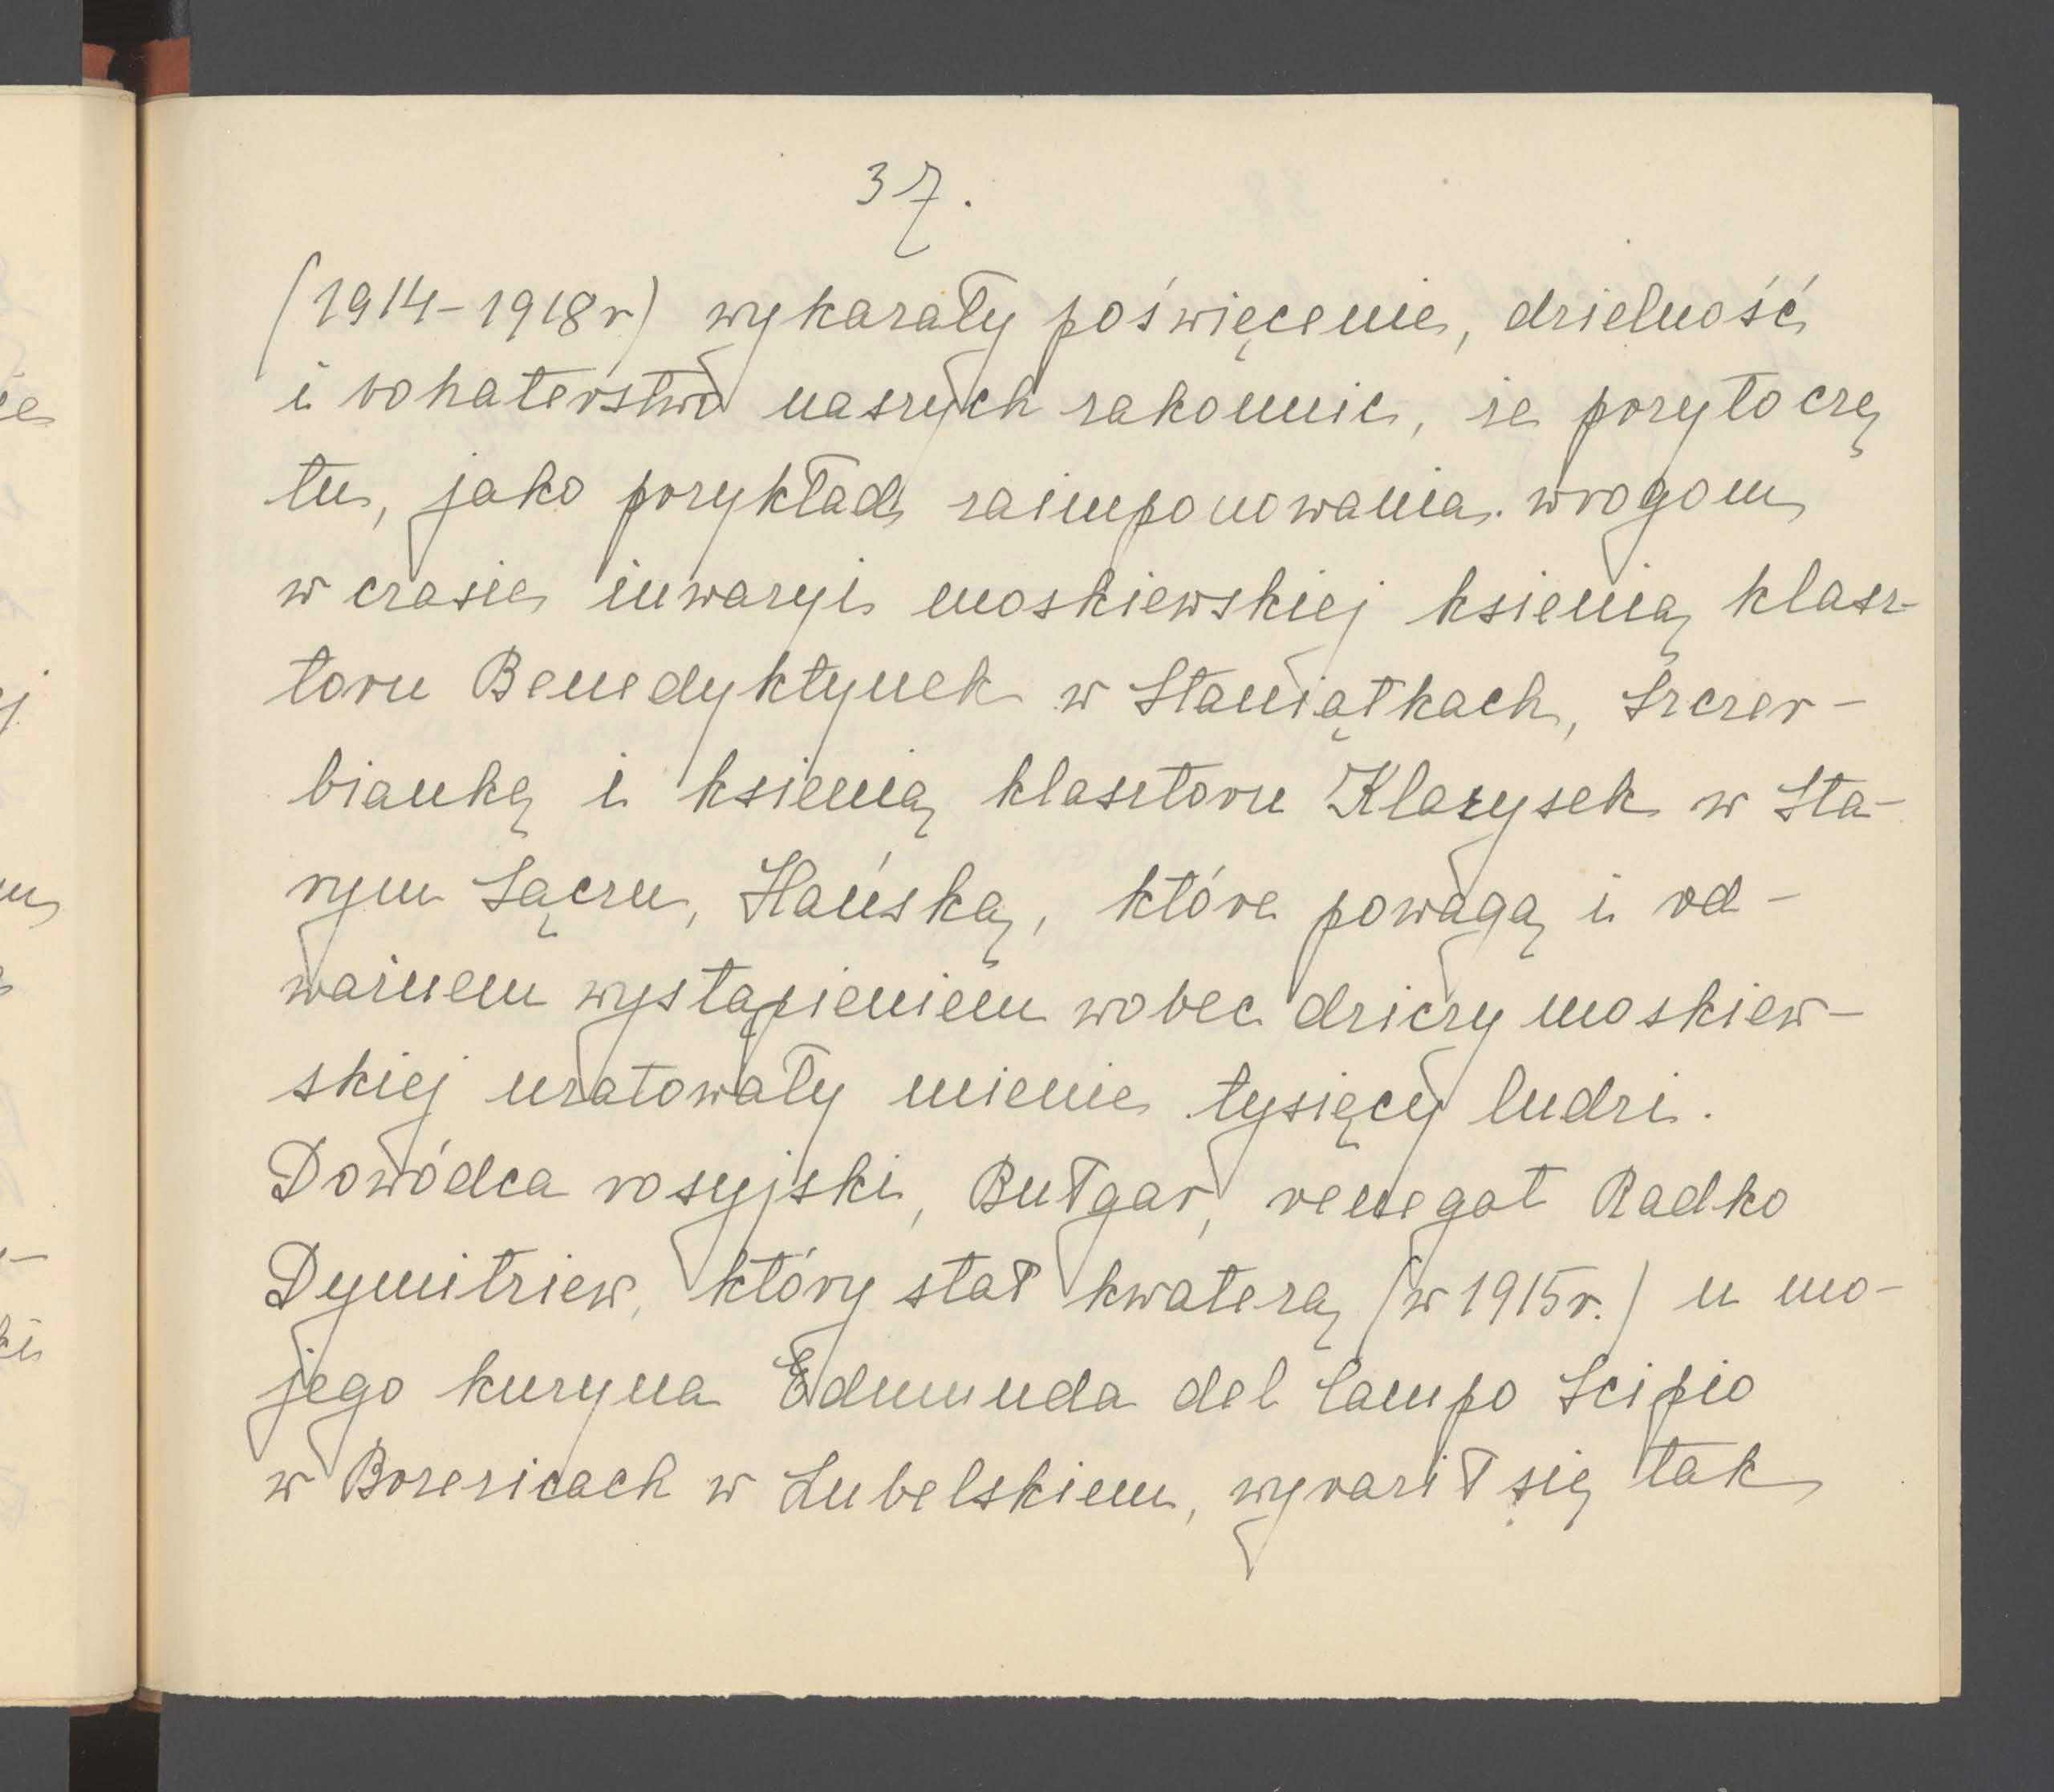 37.
(1914-1918r) wykazały poświęcenie, dzielność
i bohaterstwo naszych zakonnic, że przytoczę
tu, jako przykład zaimponowania wrogom
w czasie inwazyi moskiewskiej ksienią klasz-
toru Benedyktynek w Staniątkach, Szczer-
bianką i ksienią klasztoru Klarysek w Sta-
rym Sączu, Hańską, które powagą i od-
ważnem wystąpieniem wobec dziczy moskiew-
skiej uratowały mienie tysięcy ludzi.
Dowódca rosyjski, Bułgar, renegat Radko
Dymitriew, który stał kwaterą (w 1915r.) u mo-
jego kuzyna Edmunda del Campo Scipio
w Bozezicach w Lubelskiem, wyraził się tak